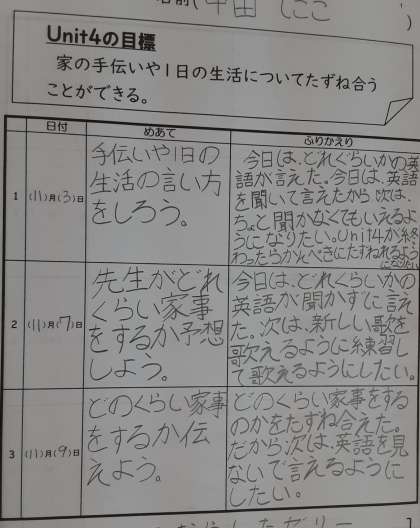 Unit4の目標
家の手伝いや1日の生活についてたずね合う
ことができる。
日付
めあて
ふりかえり
1
(11)月(3)日
手伝いや1日の
生活の言い方
をしろう。
今日は、どれぐらいかの英
語が言えた。今日は、英語
を聞いて言えたから次は、
ちょと聞かなくてもいえるよ
うになりたい。Unit4が終
わったらかんぺきにたずねれるよう
になりたい
2
(11)月(7)日
先生がどれ
くらい家事
をするか予想
しよう。
今日は、どれくらいかの
英語が聞かずに言え
た。次は、新しい歌を
歌えるように練習し
て歌えるようにしたい。
3
(11)月(9)日
どのくらい家事
をするか伝
えよう。
どのくらい家事をする
のかをたずね合えた。
だから次は、英語を見
ないで言えるように
したい。